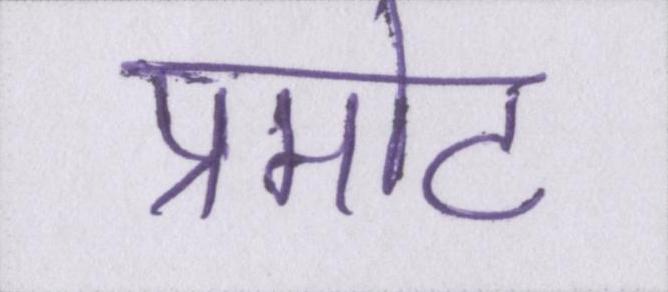 प्रमोट